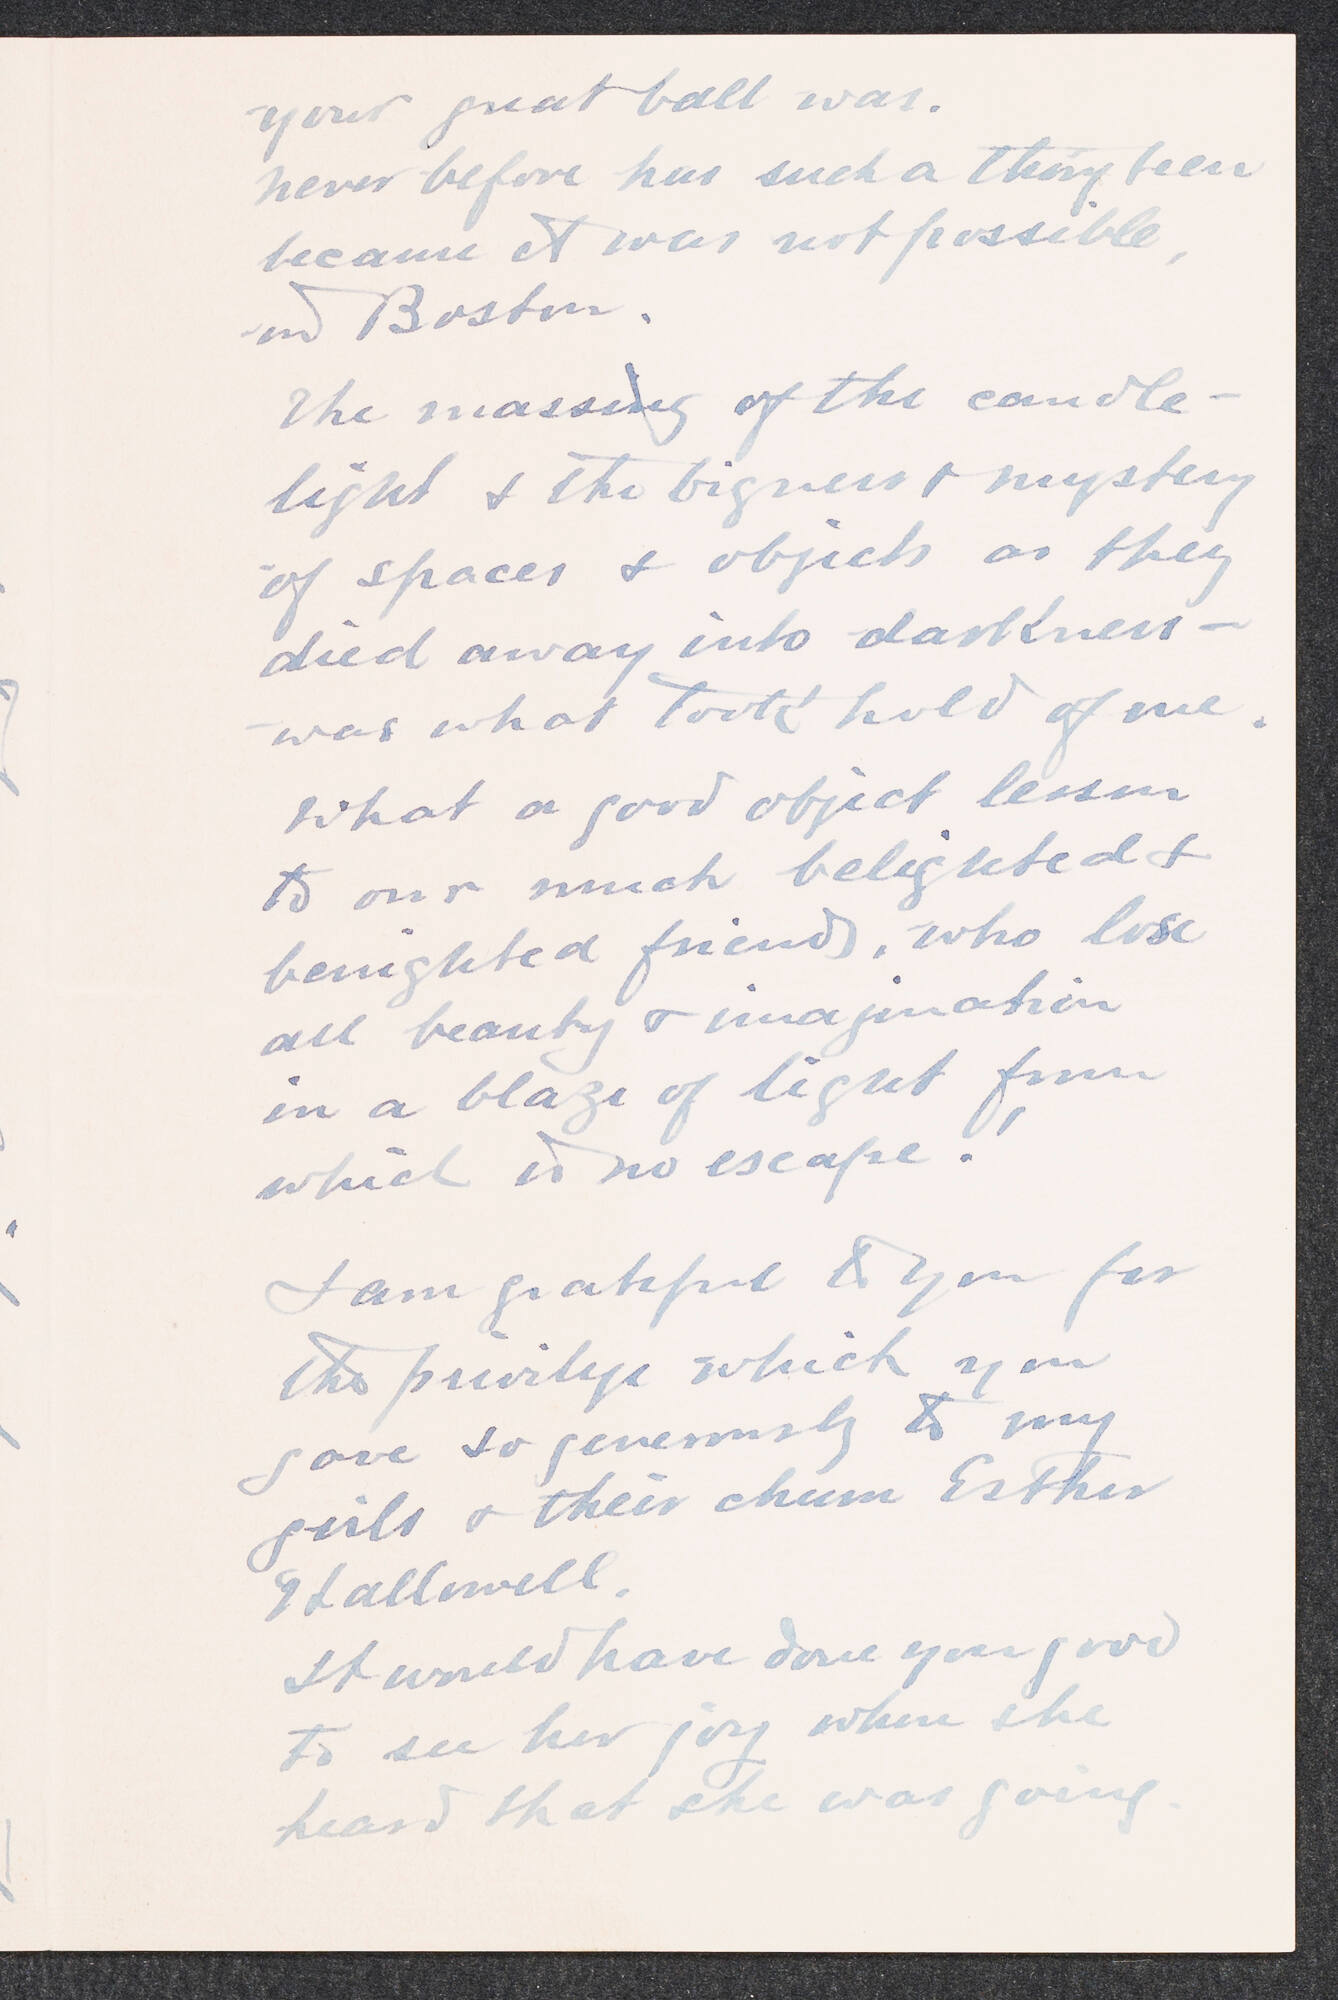 your great ball was.
never before has such a thing been
because it was not possible,
in Boston.
The massing of the candle-
light & the bigness & mystery
of spaces & objects as they
died away into darkness -
was what took hold of me.
What a good object lesson
to our much belighted &
benighted friends, who lose
all beauty & imagination
in a blaze of light from
which is no escape!
I am grateful to you for
the privilege which you
gave so generously to my
girls & their chum Esther
Hallowell.
It would have done you good
to see her joy when she
heard that she was going.